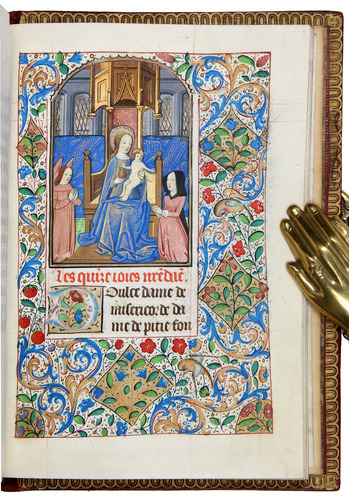 Les quīze ioies nr̄e dāe.
Doulce dame de
misericorde da
me de pitie fon